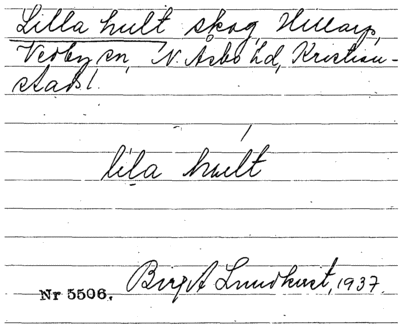 Lilla hult skog, Hillarp,
Vedby sn, N. Asbo hd, Kristian-
stads l.
lila hult
Nr 5506. Birgit Lundkvist, 1937.